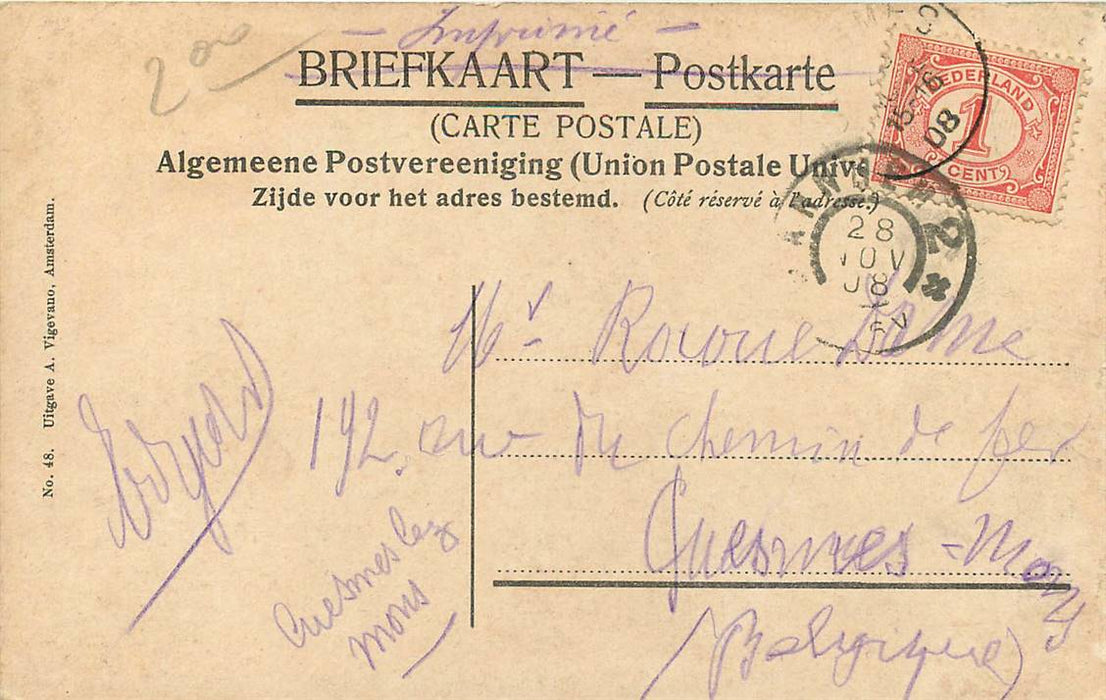 200
— Imprimé —
BRIEFKAART — Postkarte
(CARTE POSTALE)
Algemeene Postvereeniging (Union Postale Unive
Zijde voor het adres bestemd. (Côté réservé à l'adresse.)
NEDERLAND
1
CENT
15-16
08
2
28
NOV
08
No. 48. Uitgave A. Vigevano, Amsterdam.
Mr
192, rue du chemin de fer
Quesmes-Mons
(Belgique)
Cuesmes lez
Mons